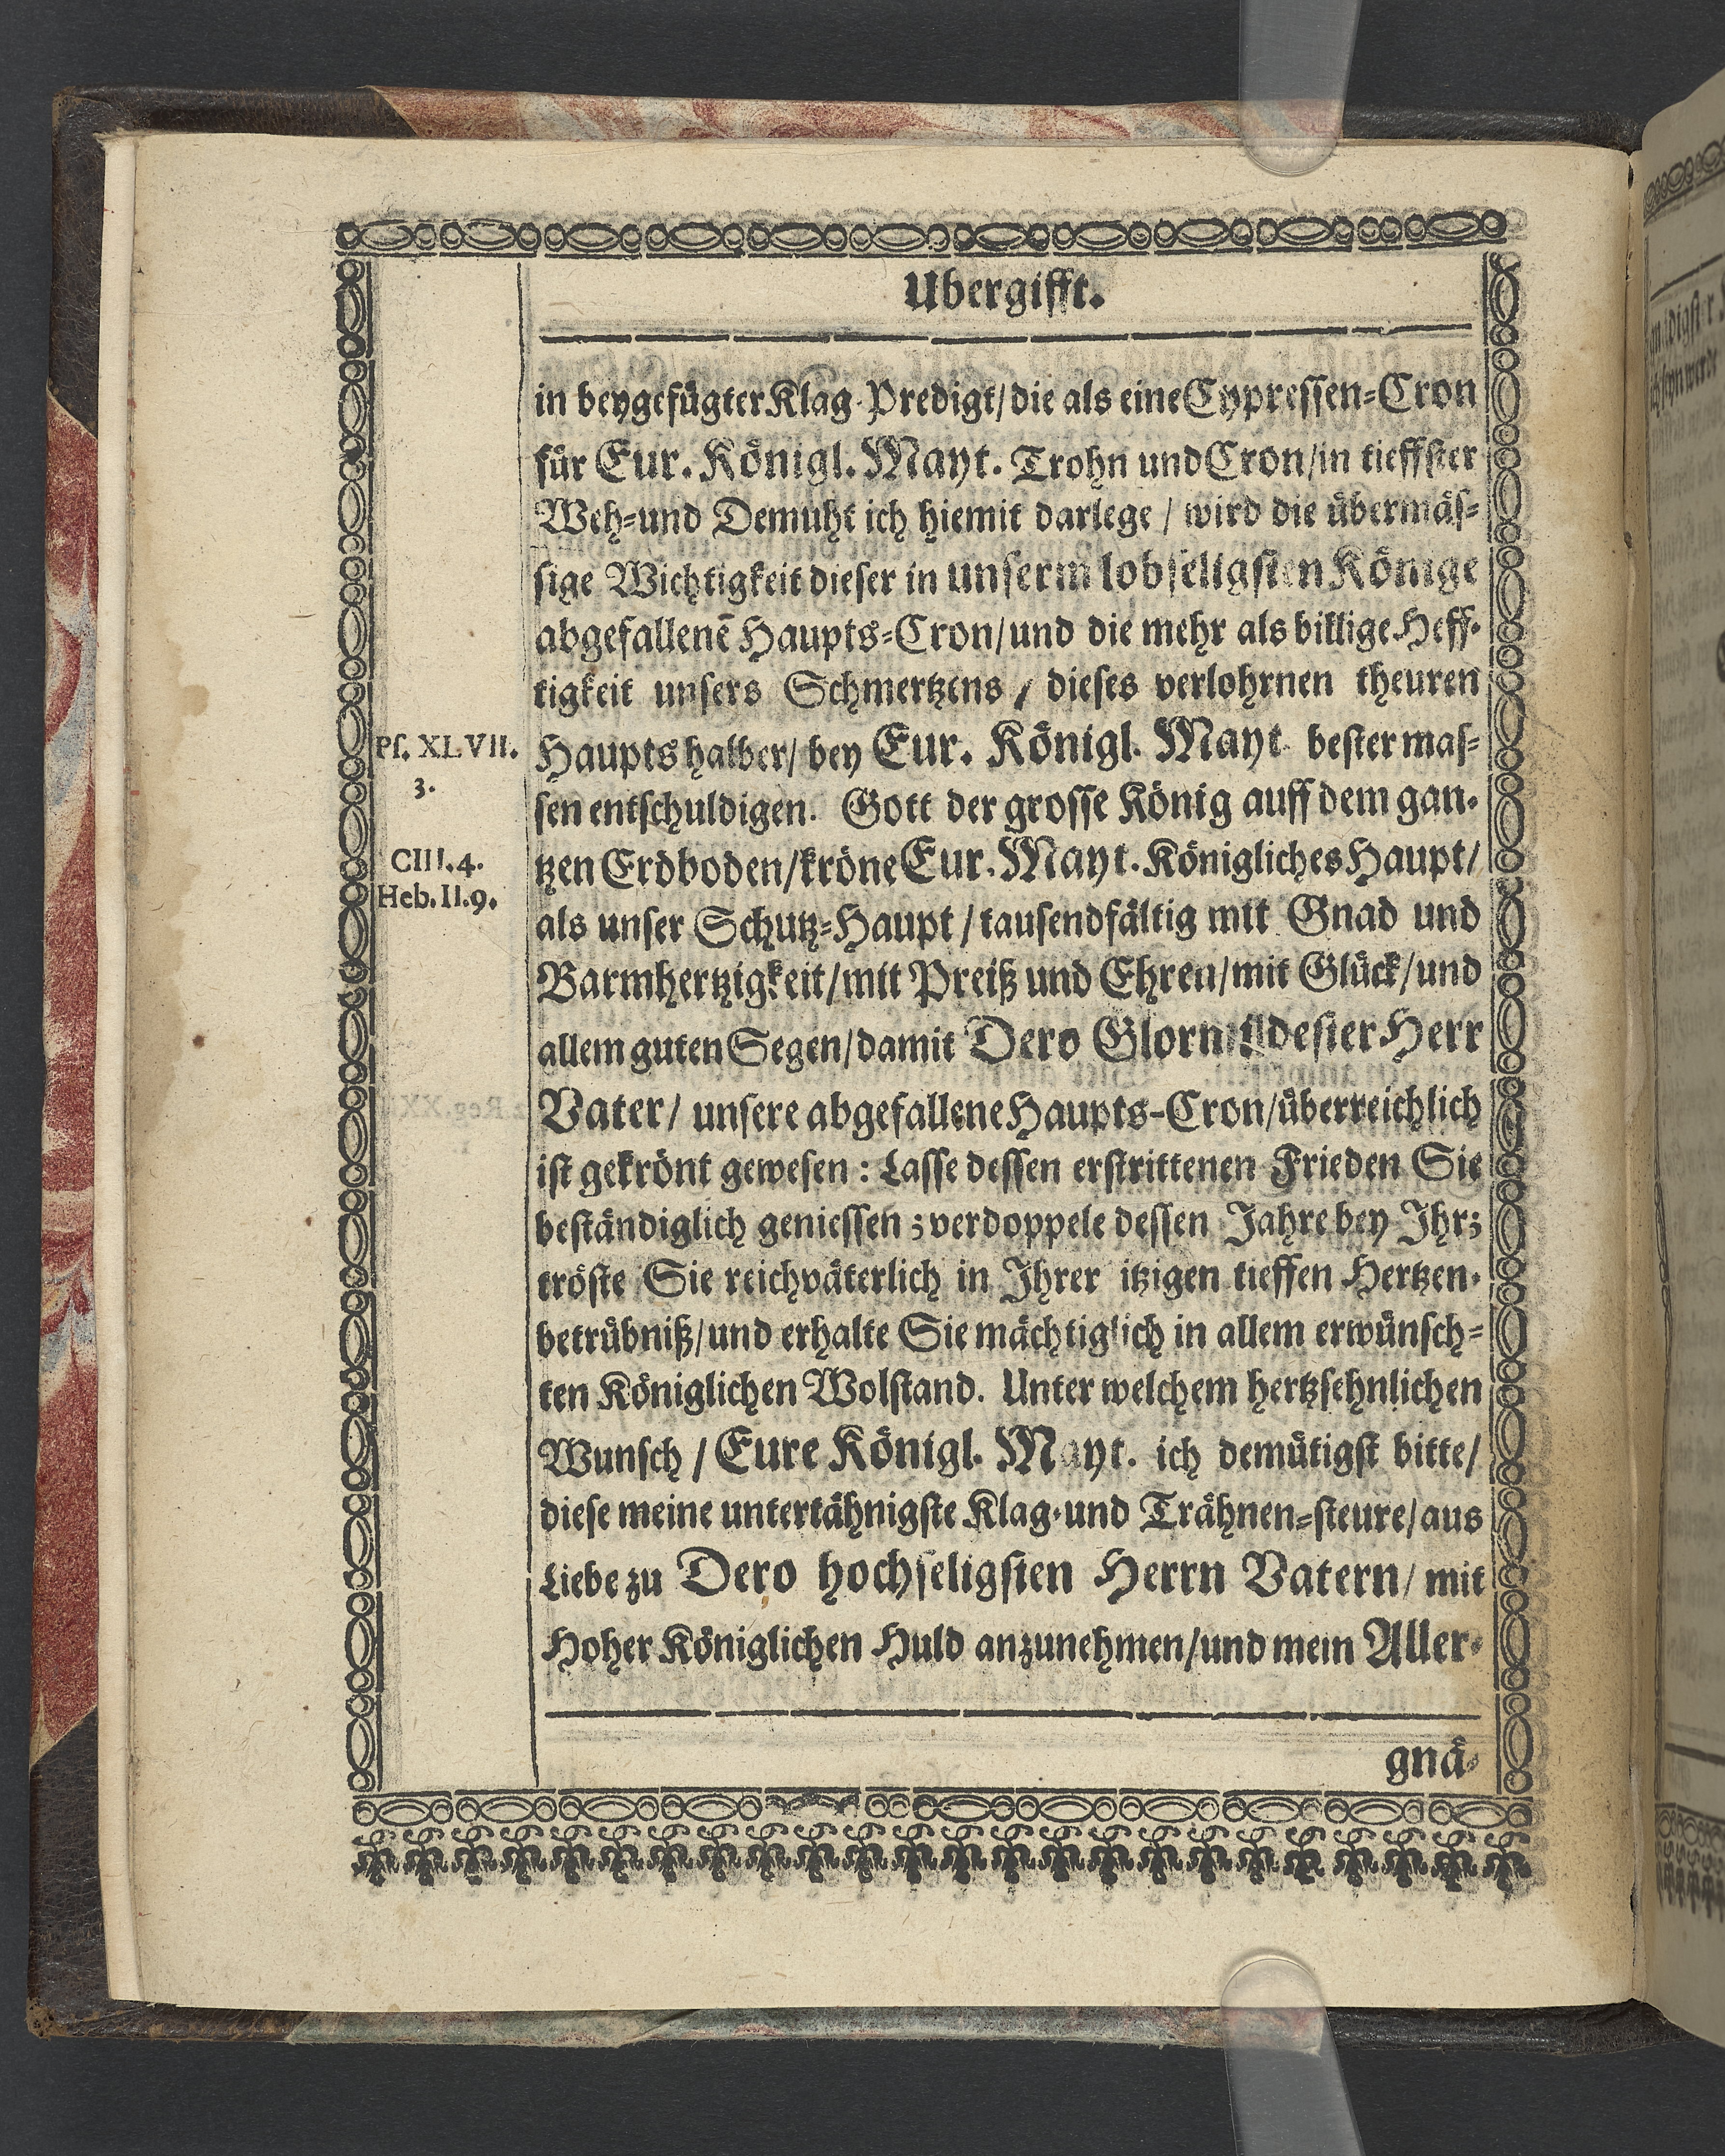 Ubergifft.
in beygefügter Klag-Predigt/ die als eine Cypressen-Cron
für Eur. Königl. Mayt. Trohn und Cron/ in tieffster
Weh- und Demuht ich hiemit darlege / wird die übermäs-
sige Wichtigkeit dieser in unserm lobseligsten Könige
abgefallenē Haupts-Cron/ und die mehr als billige Heff-
tigkeit unsers Schmertzens / dieses verlohrnen theuren
Ps. XLVII.
3.
Haupts halber/ bey Eur. Königl. Mayt bester mas-
sen entschuldigen. Gott der grosse König auff dem gan-
CIII. 4.
Heb. II. 9.
tzen Erdboden/ kröne Eur. Mayt. Königliches Haupt/
als unser Schutz-Haupt / tausendfältig mit Gnad und
Barmhertzigkeit/ mit Preiß und Ehren/ mit Glück/ und
allem guten Segen/ damit Dero Herr
Vater/ unsere abgefallene Haupts-Cron/ überreichlich
ist gekrönt gewesen : Lasse dessen erstrittenen Frieden Sie
beständiglich geniessen ; verdoppele dessen Jahre bey Ihr;
tröste Sie reichväterlich in Ihrer itzigen tieffen Hertzen-
betrübniß/ und erhalte Sie mächtiglich in allem erwünsch-
ten Königlichen Wolstand. Unter welchem hertzsehnlichen
Wunsch / Eure Königl. Mayt. ich demütigst bitte/
diese meine untertähnigste Klag- und Trähnen-steure/ aus
Liebe zu Dero hochseligsten Herrn Vatern/ mit
Hoher Königlichen Huld anzunehmen/ und mein Aller-
gnä-